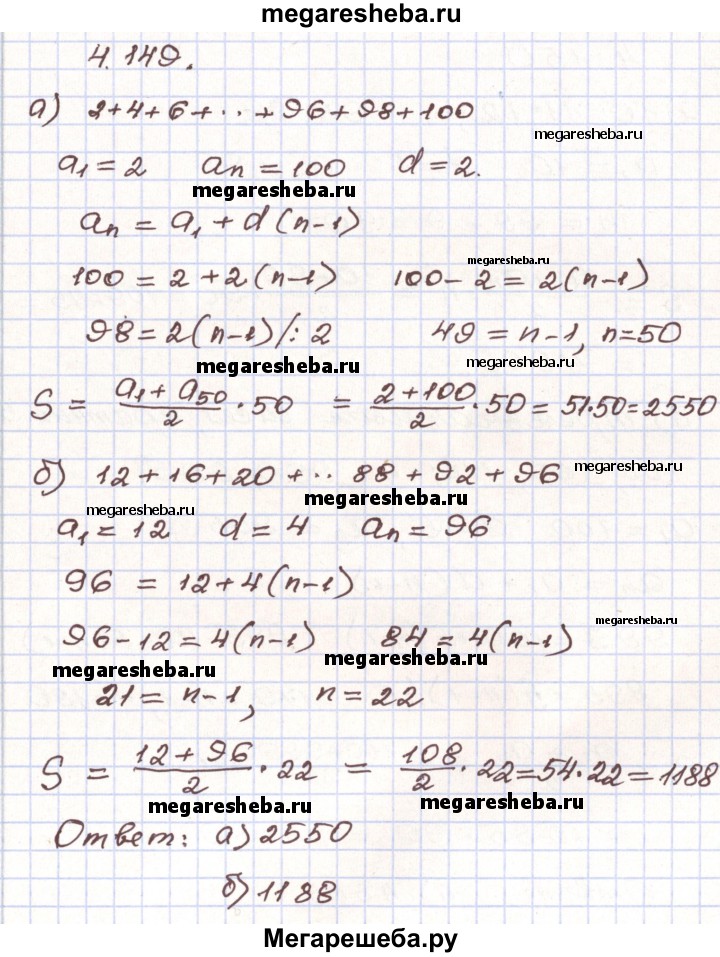 megaresheba.ru
4.149.
а) 2+4+6+...+96+98+100
megaresheba.ru
a₁=2 aₙ=100 d=2.
megaresheba.ru
aₙ = a₁ + d(n-1)
megaresheba.ru
100 = 2 + 2(n-1) 100-2 = 2(n-1)
98 = 2(n-1) /: 2 49 = n-1, n=50
megaresheba.ru megaresheba.ru
S = (a₁ + a₅₀)/2 · 50 = (2+100)/2 · 50 = 51·50 = 2550
б) 12+16+20+.. 88+92+96 megaresheba.ru
megaresheba.ru
megaresheba.ru
a₁ = 12 d = 4 aₙ = 96
96 = 12+4(n-1)
megaresheba.ru
96-12 = 4(n-1) 84 = 4(n-1)
megaresheba.ru megaresheba.ru
21 = n-1, n = 22
S = (12+96)/2 · 22 = 108/2 · 22 = 54·22 = 1188
megaresheba.ru megaresheba.ru
Ответ: а) 2550
б) 1188
Мегарешеба.ру